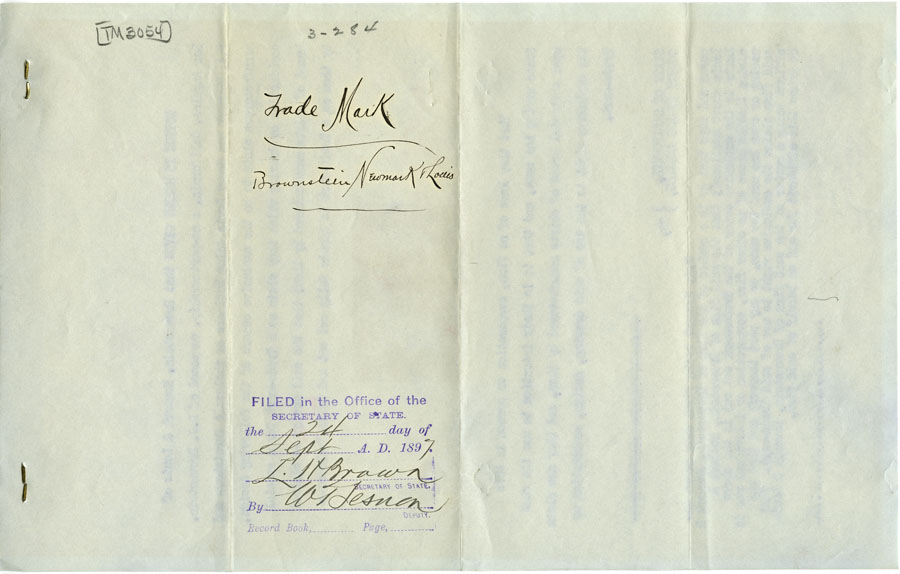 [TM3054]
3-284
Trade Mark
Brownstein Newmark & Louis
FILED in the Office of the
SECRETARY OF STATE.
the 24 day of
Sept A. D. 1897.
L. H Brown
SECRETARY OF STATE.
By
DEPUTY.
Record Book, Page,